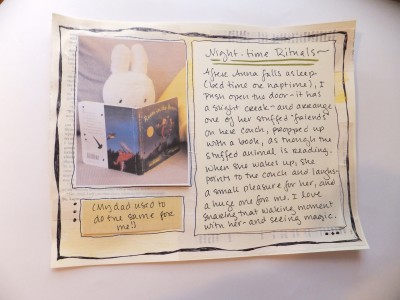 Night-time Rituals~
After Anna falls asleep
(bed time or naptime), I
push open the door - it has
a slight creak - and arrange
one of her stuffed "friends"
on her couch, propped up
with a book, as though the
stuffed animal is reading.
When she wakes up, she
points to the couch and laughs-
a small pleasure for her, and
a huge one for me. I love
sharing that waking moment
with her - and seeing magic.
(My dad used to
do the same for
me!)